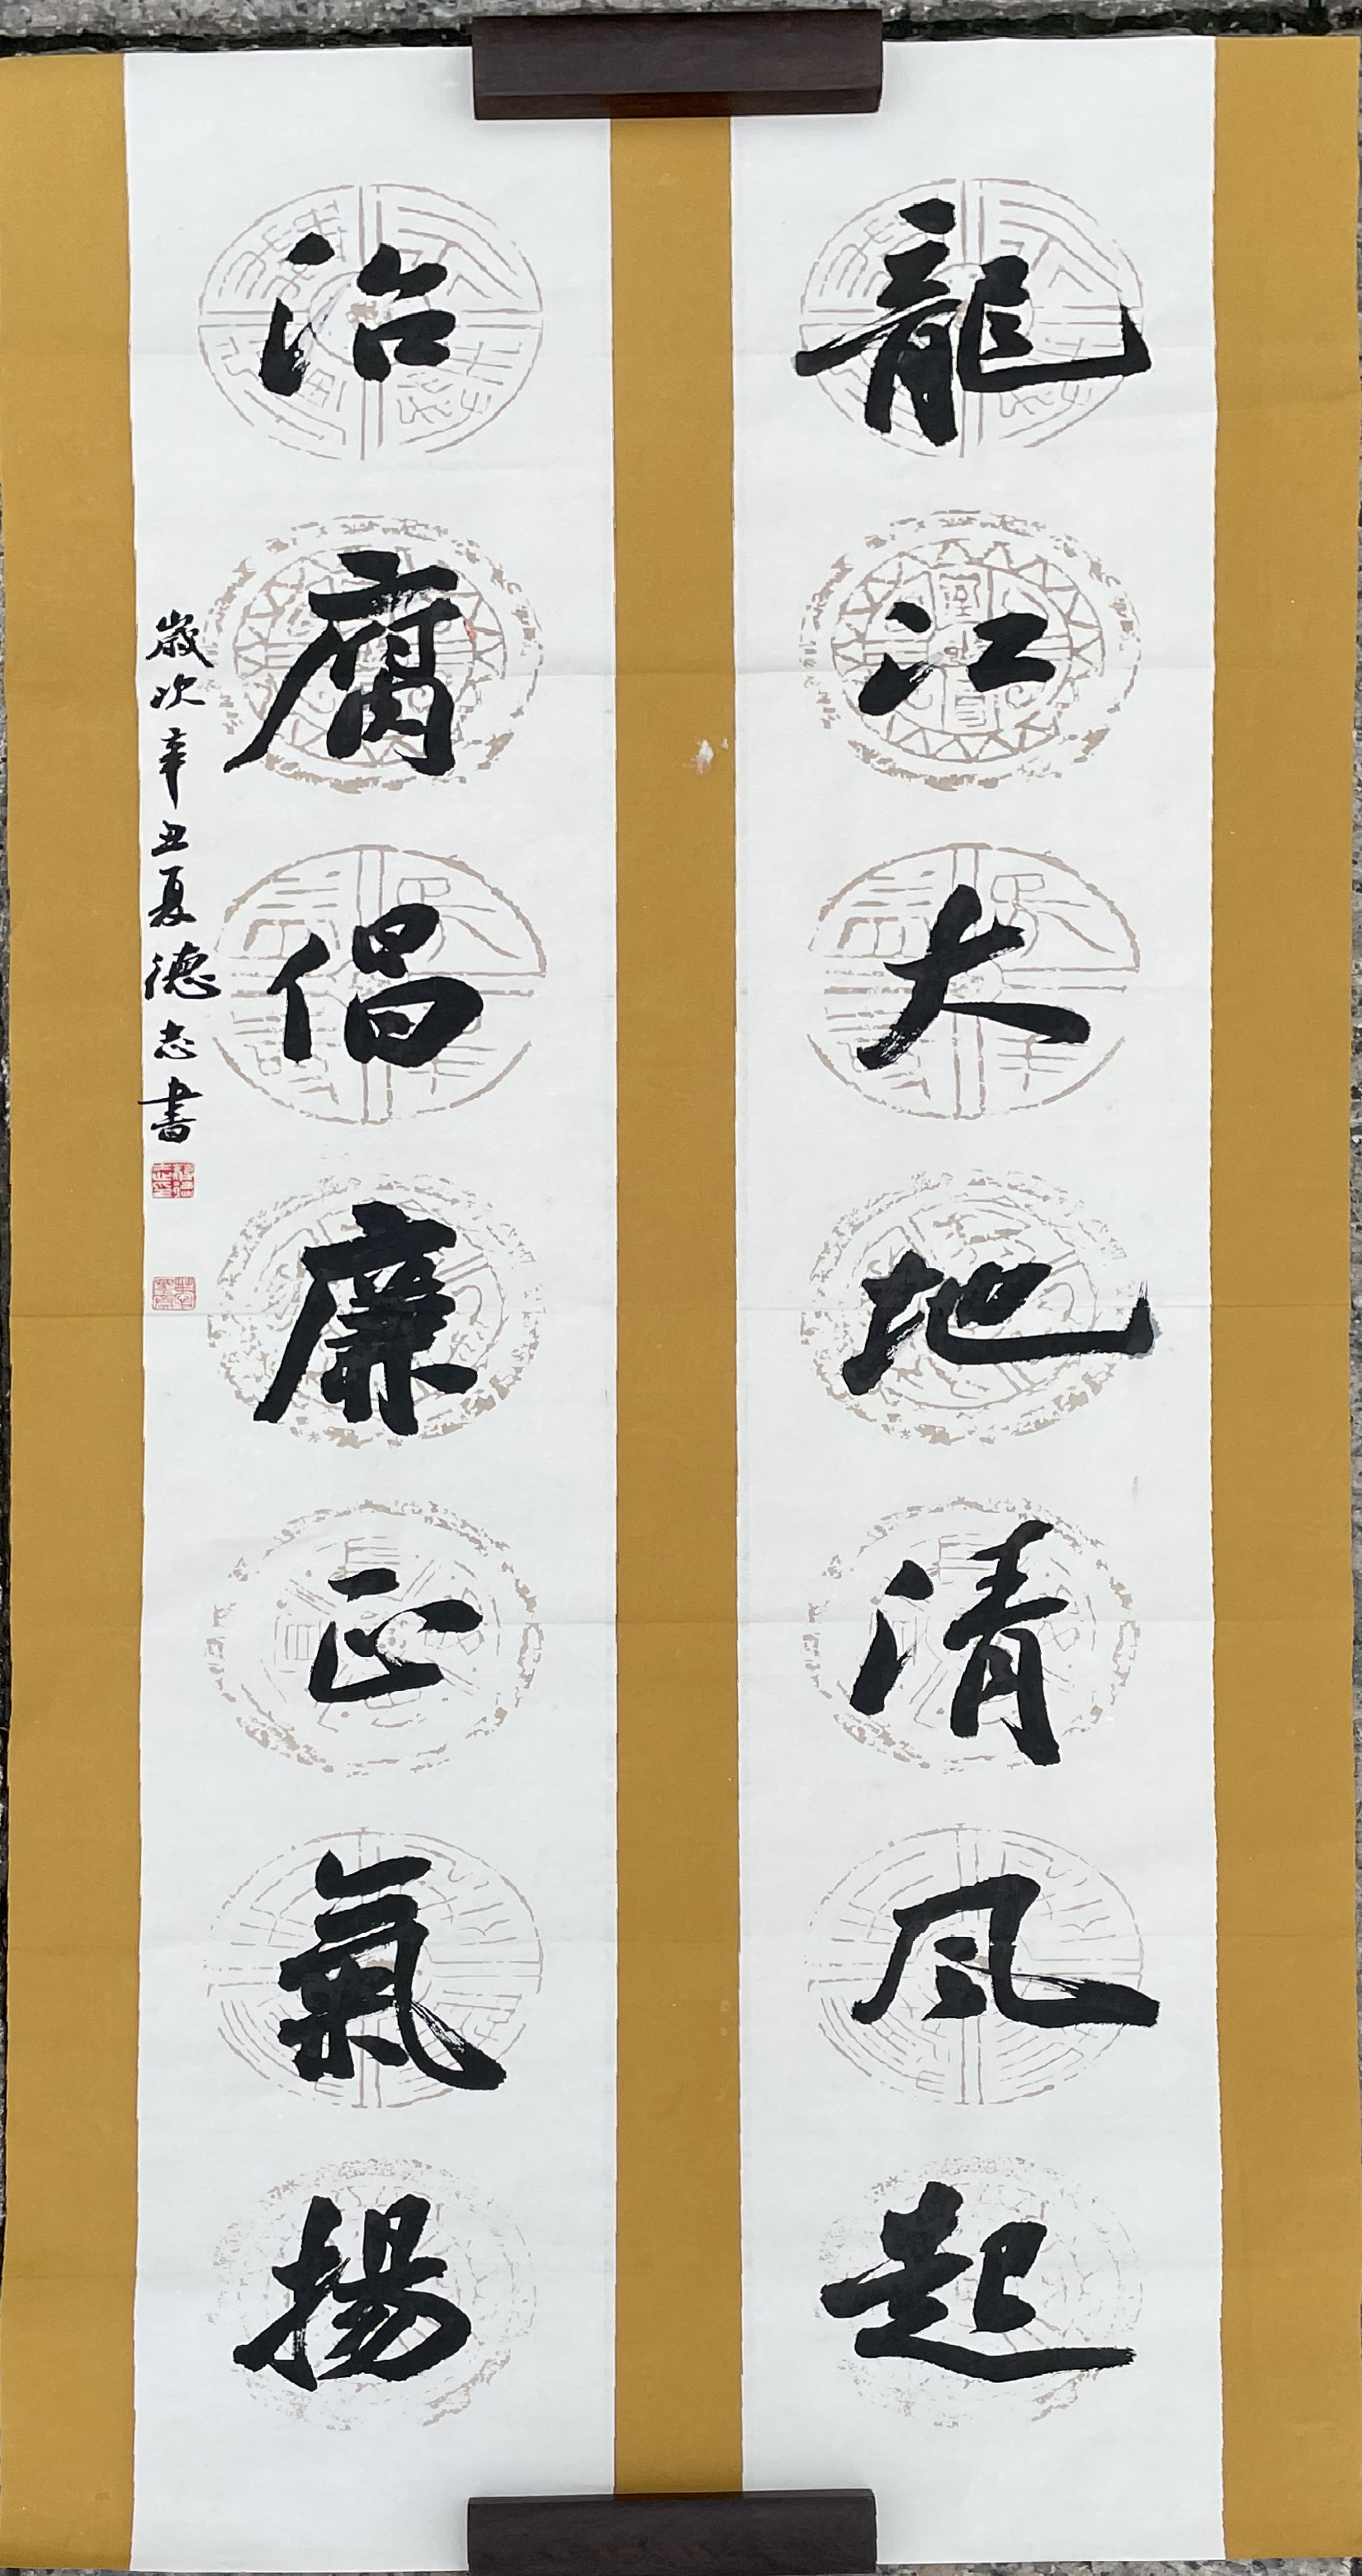 龍江大地清风起
治腐倡廉正氣揚
歲次辛丑夏德志書